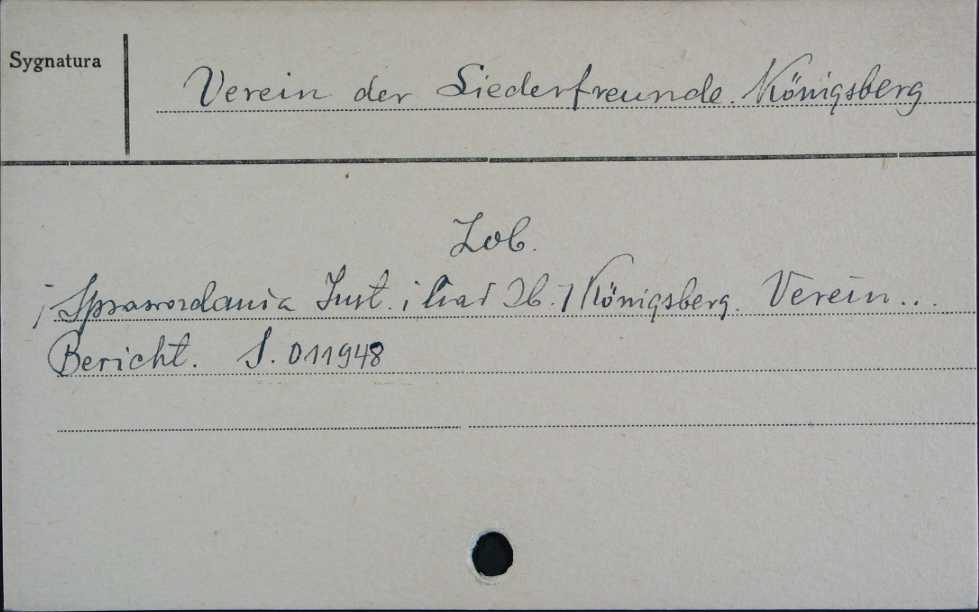 Sygnatura
Verein der Liederfreunde. Königsberg
Zob.
/Sprawozdania Inst. i
Königsberg. Verein...
Bericht. S. 011948